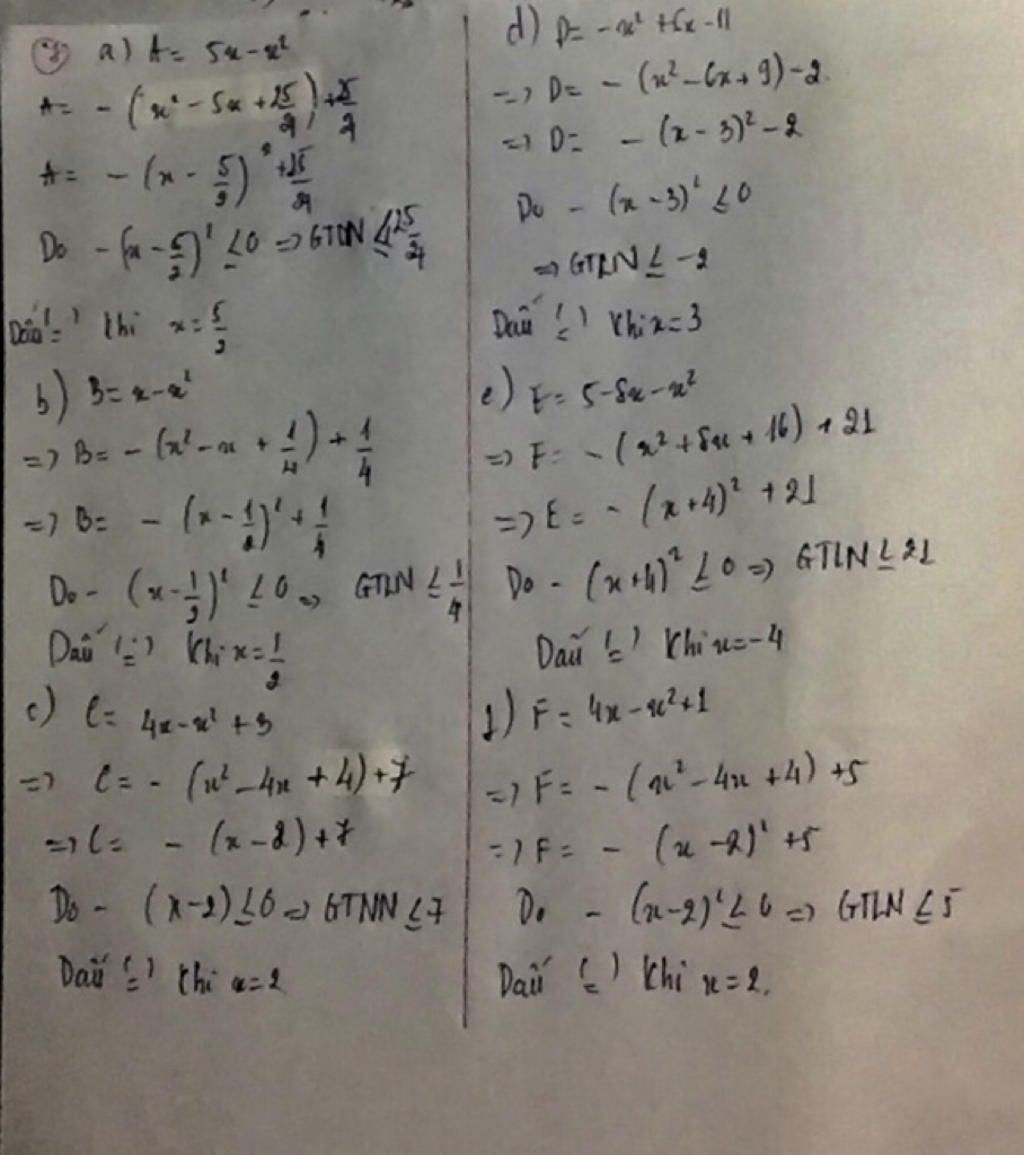 a) A = 5x - x²
A = - (x² - 5x + 25/4) + 25/4
A = - (x - 5/2)² + 25/4
Do - (x - 5/2)² ≤ 0 => GTLN ≤ 25/4
Dấu '=' khi x = 5/2
b) B = x - x²
=> B = - (x² - x + 1/4) + 1/4
=> B = - (x - 1/2)² + 1/4
Do - (x - 1/2)² ≤ 0 => GTLN ≤ 1/4
Dấu '=' khi x = 1/2
c) C = 4x - x² + 3
=> C = - (x² - 4x + 4) + 7
=> C = - (x - 2) + 7
Do - (x - 2) ≤ 0 => GTNN ≤ 7
Dấu '=' khi x = 2
d) D = - x² + 6x - 11
=> D = - (x² - 6x + 9) - 2.
=> D = - (x - 3)² - 2
Do - (x - 3)² ≤ 0
=> GTLN ≤ -2
Dấu '=' khi x = 3
e) E = 5 - 8x - x²
=> E = - (x² + 8x + 16) + 21
=> E = - (x + 4)² + 21
Do - (x + 4)² ≤ 0 => GTLN ≤ 21
Dấu '=' khi x = -4
f) F = 4x - x² + 1
=> F = - (x² - 4x + 4) + 5
=> F = - (x - 2)² + 5
Do - (x - 2)² ≤ 0 => GTLN ≤ 5
Dấu '=' khi x = 2.